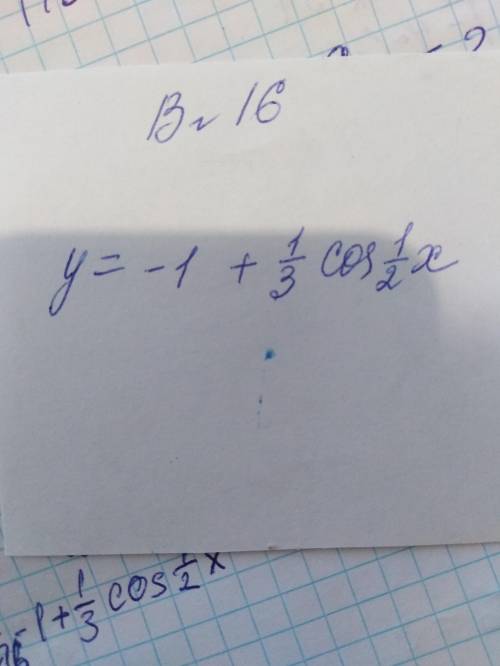 В-16
y = -1 + 1/3 cos 1/2 x
-1 + 1/3 cos 1/2 x